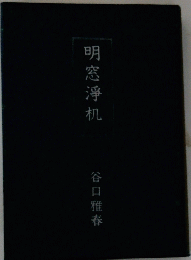 明窓淨机
谷口雅春